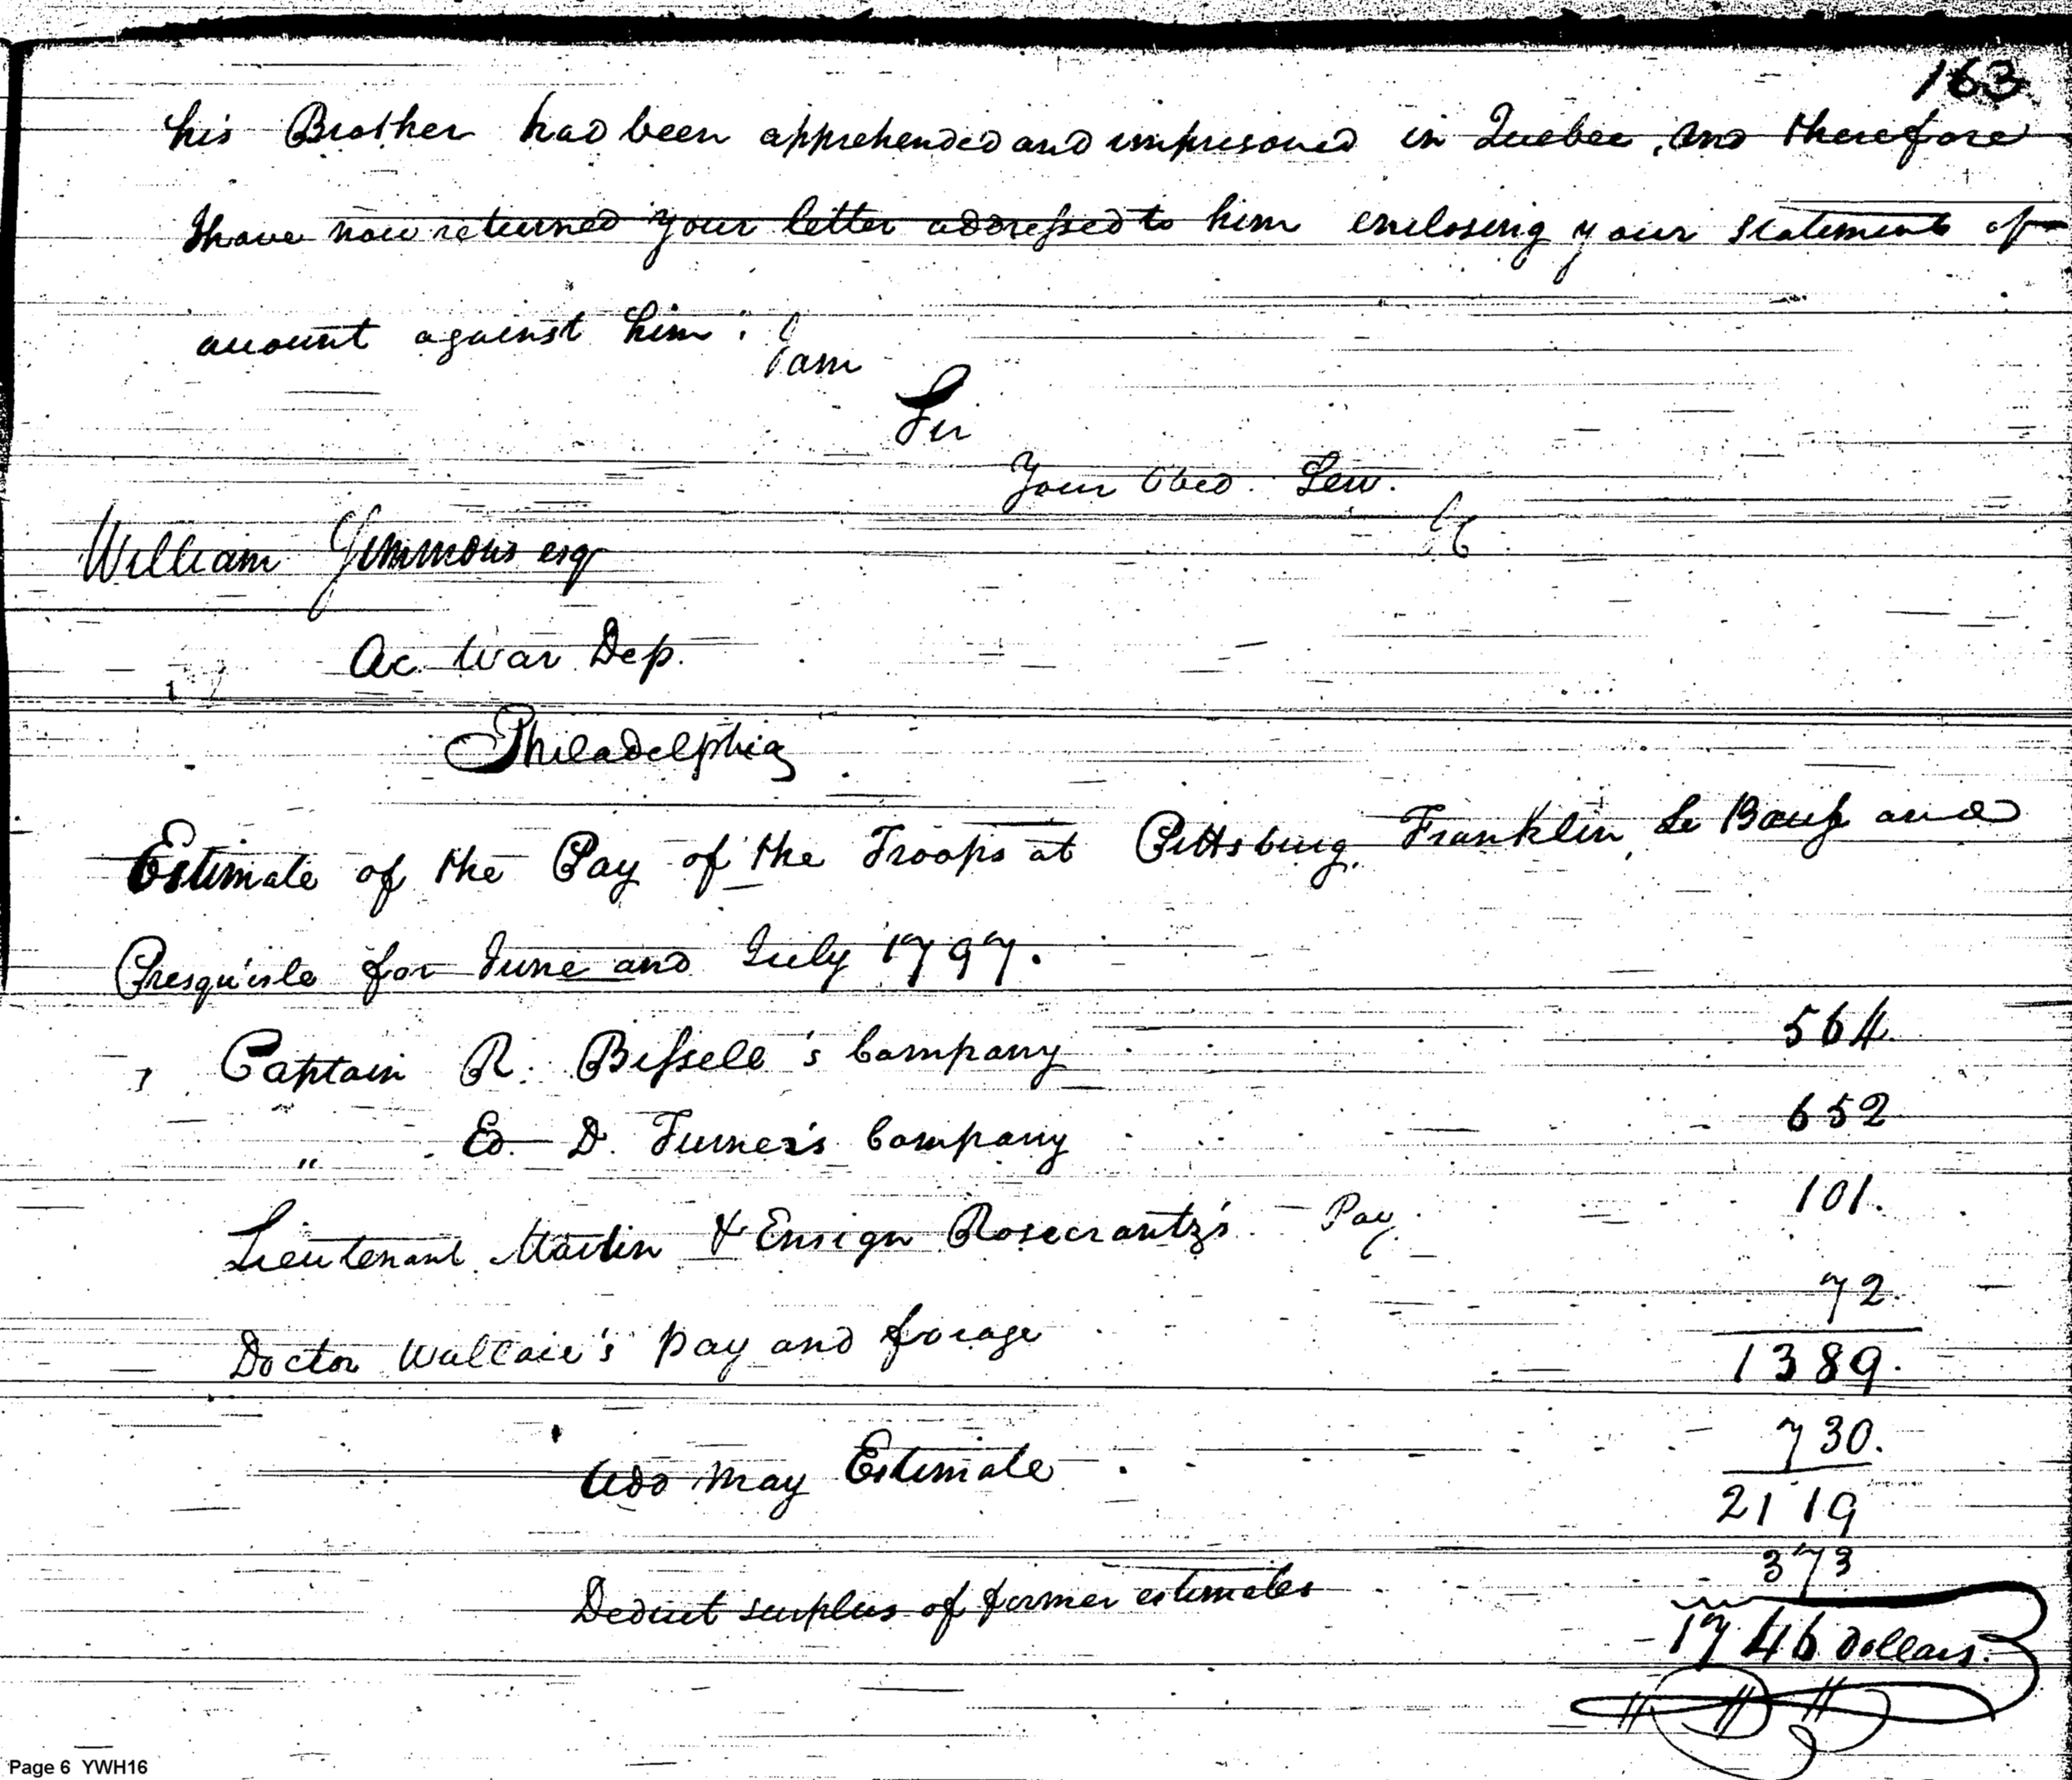 163
his Brother had been apprehended and imprisoned in Quebec, and therefore
I have now returned your letter addressed to him enclosing your statement of
account against him: I am
Sir
Your Obed. Serv.
William Simmons esq
Ac. War Dep.
Philadelphia
Estimate of the Pay of the Troops at Pittsburg, Franklin, Le Bouf and
Presqu'isle for June and July 1797.
Captain R. Bissell's Company 564.
" Ed. D. Turner's Company 652
Lieutenant Martin & Ensign Rosecrantz's Pay 101.
Doctor Wallace's pay and forage 72.
1389.
Add May Estimate 730.
2119
Deduct surplus of former estimates 373
1746 dollars.
Page 6 YWH16